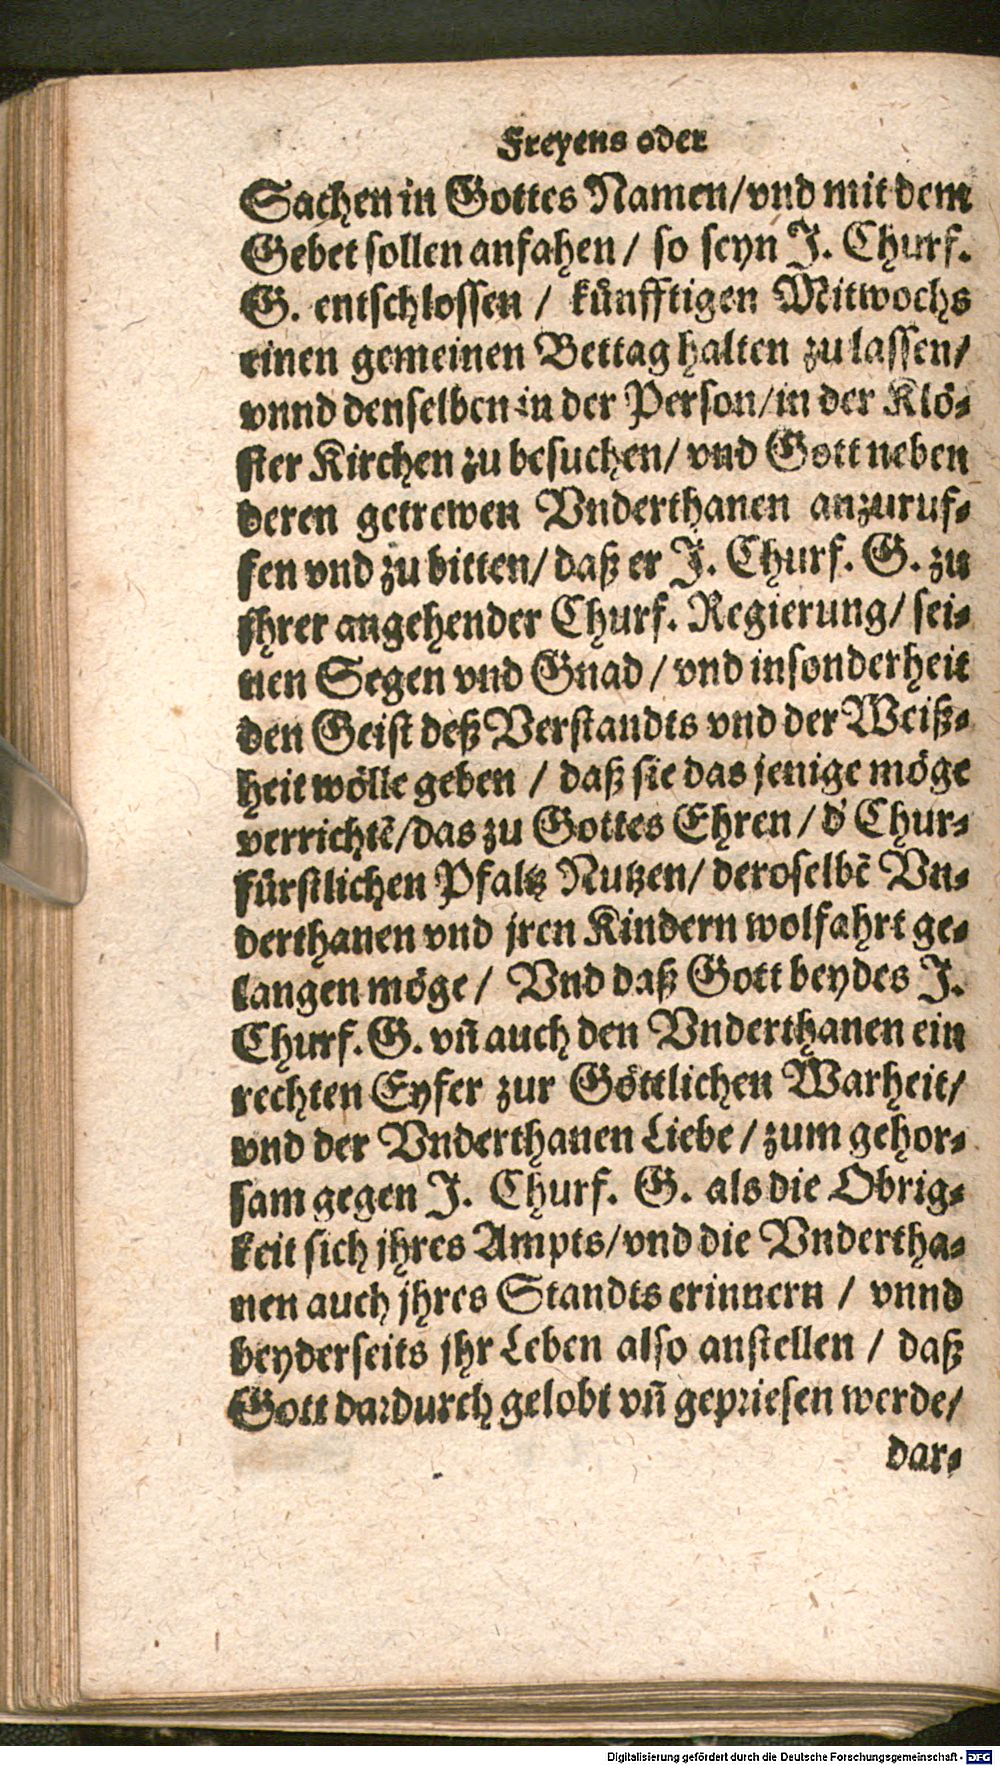 Freyens oder
Sachen in Gottes Namen/vnd mit dem
Gebet sollen anfahen/ so seyn J. Churf.
G. entschlossen / künfftigen Mittwochs
einen gemeinen Bettag halten zu lassen/
vnnd denselben in der Person/in der Klö-
ster Kirchen zu besuchen/ vnd Gott neben
deren getrewen Vnderthanen anzuruf-
fen vnd zu bitten/ daß er J. Churf. G. zu
jhrer angehender Churf. Regierung/ sei-
nen Segen vnd Gnad / vnd insonderheit
den Geist deß Verstandts vnd der Weiß-
heit wölle geben / daß sie das jenige möge
verrichtē/das zu Gottes Ehren / d' Chur-
fürstlichen Pfaltz Nutzen/ deroselbē Vn-
derthanen vnd jren Kindern wolfahrt ge-
langen möge / Vnd daß Gott beydes J.
Churf. G. vn̄ auch den Vnderthanen ein
rechten Eyfer zur Göttlichen Warheit/
vnd der Vnderthanen Liebe / zum gehor-
sam gegen J. Churf. G. als die Obrig-
keit sich jhres Ampts/vnd die Vndertha-
nen auch jhres Standts erinnern / vnnd
beyderseits jhr Leben also anstellen / daß
Gott dardurch gelobt vn̄ gepriesen werde/
dar-
Digitalisierung gefördert durch die Deutsche Forschungsgemeinschaft - DFG